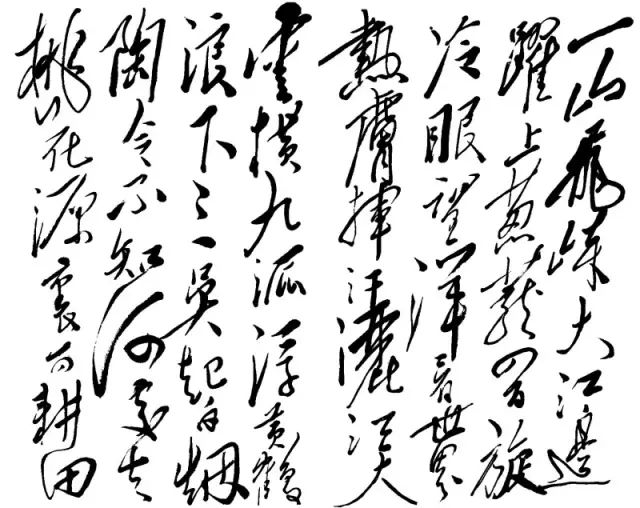 一山飛峙大江邊
躍上葱蘢四百旋
冷眼望洋看世界
熱膚揮汗灑江天
雲橫九派浮黃鶴
浪下三吳起白烟
陶令不知何處去
桃花源裏可耕田